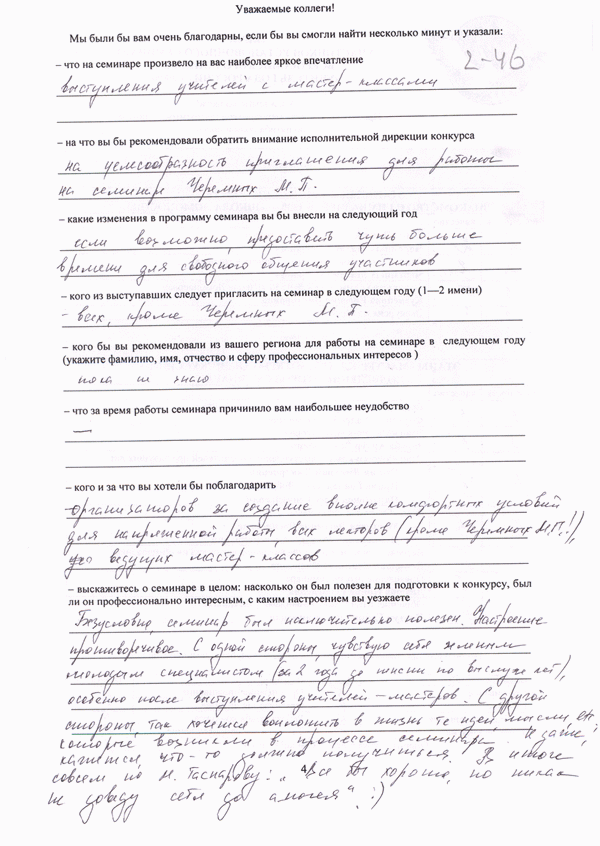 Уважаемые коллеги!
Мы были бы вам очень благодарны, если бы вы смогли найти несколько минут и указали:
– что на семинаре произвело на вас наиболее яркое впечатление
2-46
выступления учителей с мастер-классами
– на что вы бы рекомендовали обратить внимание исполнительной дирекции конкурса
на целесообразность приглашения для работы
на семинаре Черемных М.П.
– какие изменения в программу семинара вы бы внесли на следующий год
если возможно, предоставить чуть больше
времени для свободного общения участников
– кого из выступавших следует пригласить на семинар в следующем году (1—2 имени)
- всех, кроме Черемных М.П.
– кого бы вы рекомендовали из вашего региона для работы на семинаре в следующем году
(укажите фамилию, имя, отчество и сферу профессиональных интересов )
пока не знаю
– что за время работы семинара причинило вам наибольшее неудобство
—
– кого и за что вы хотели бы поблагодарить
организаторов за создание вполне комфортных условий
для напряженной работы, всех лекторов (кроме Черемных М.П.!),
ведущих мастер-классов
– выскажитесь о семинаре в целом: насколько он был полезен для подготовки к конкурсу, был
ли он профессионально интересным, с каким настроением вы уезжаете
Безусловно, семинар был исключительно полезен. Настроение
противоречивое. С одной стороны, чувствую себя зеленым
молодым специалистом (за 2 года до пенсии по выслуге лет),
особенно после выступления учителей-мастеров. С другой
стороны, так хочется воплотить в жизнь те идеи, мысли,
которые возникли в процессе семинара. И даже,
кажется, что-то должно получиться. В итоге
совсем по М. Гаспарову: „Все бы хорошо, но никак
не доведу себя до амогея“ :)